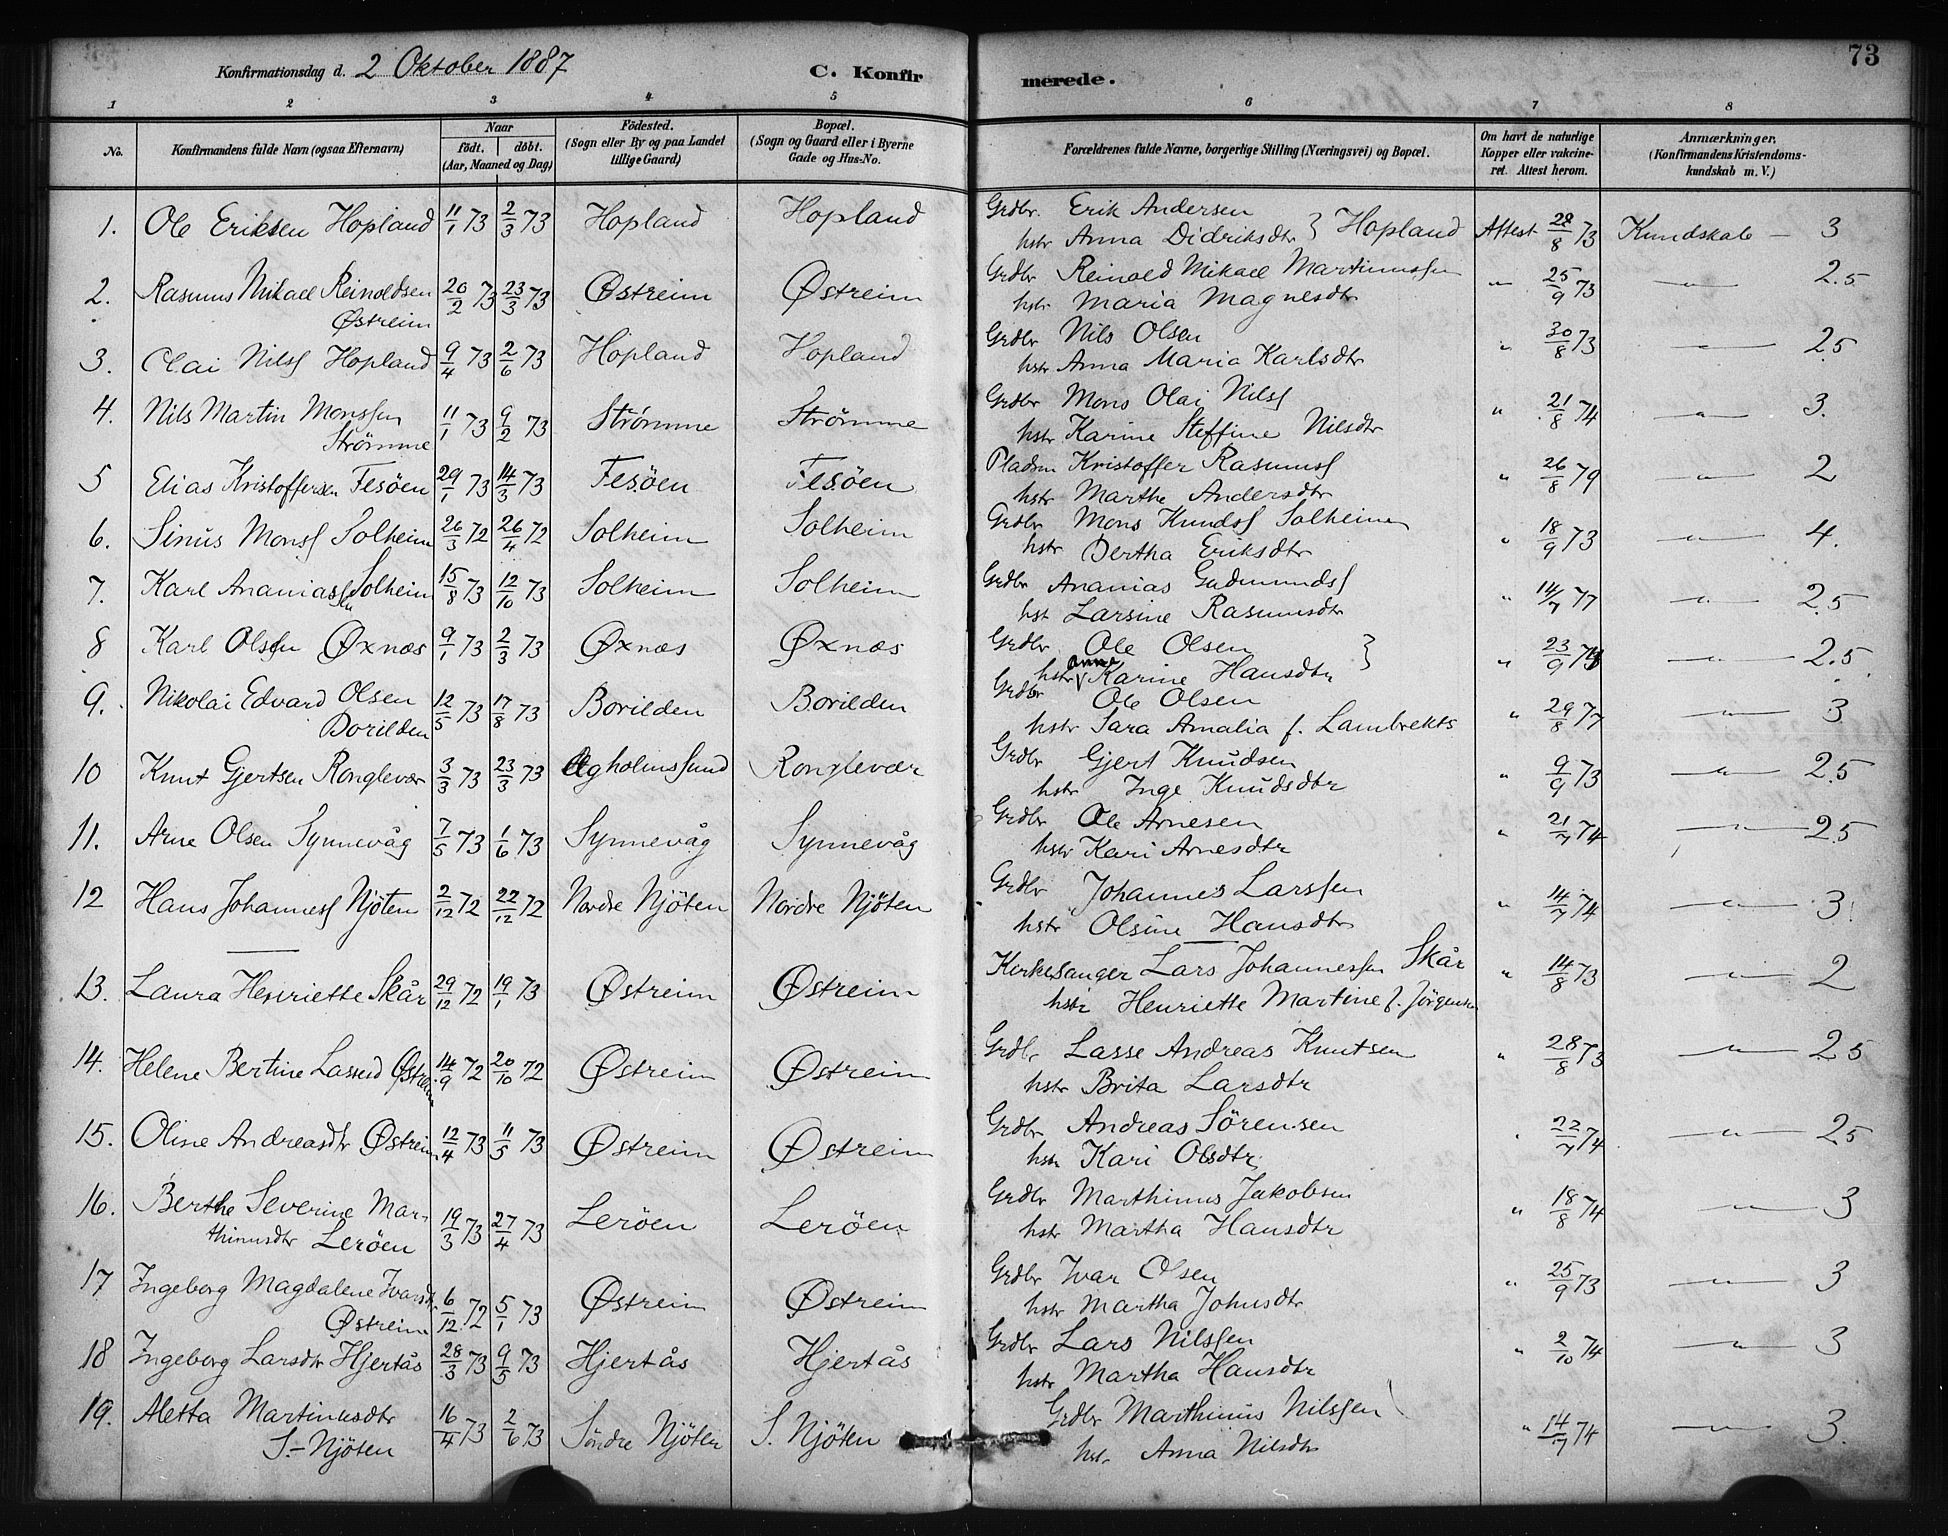 Konfirmationsdag d. 2 Oktober 1887 C. Konfirmerede. 73
1 2 3 4 5 6 7 8
No. Konfirmandens fulde Navn (ogsaa Efternavn) Naar født. døbt. (Aar, Maaned og Dag) Fødested. (Sogn eller By og paa Landet tillige Gaard) Bopæl. (Sogn og Gaard eller i Byerne Gade og Hus-No.) Forældrenes fulde Navne, borgerlige Stilling (Næringsvei) og Bopæl. Om havt de naturlige Kopper eller vakcineret. Attest herom. Anmærkninger, (Konfirmandens Kristendomskundskab m. V.)
1. Ole Eriksen Hopland 11/1 73 2/3 73 Hopland Hopland Grdbr. Erik Andersen
hstr Anna Didriksdtr } Hopland Attest 28/8 73 Kundskab – 3
2. Rasmus Mikael Reinoldsen 20/2 73 23/3 73 Østreim Østreim Grdbr Reinold Mikael Martinussen
Østreim hstr Maria Magnesdtr " 25/9 73 — " — 2.5
3. Olai Nilss Hopland 9/4 73 2/6 73 Hopland Hopland Grdbr Nils Olsen
hstr Anna Maria Karlsdtr " 30/8 73 — " — 2.5
4. Nils Martin Monssen 11/1 73 9/2 73 Strømme Strømme Grdbr Mons Olai Nilss
Strømme hstr Karine Steffine Nilsdtr " 21/8 74 — " — 3.
5 Elias Kristoffersen Fesöen 29/1 73 14/3 73 Fesöen Fesöen Pladsm Kristoffer Rasmuss
hstr Marthe Andersdtr " 26/8 79 — " — 2
6. Sinus Monss Solheim 26/3 72 26/4 72 Solheim Solheim Grdbr Mons Knudss Solheim
hstr Bertha Eriksdtr " 18/9 73 — " — 4.
7. Karl Ananiassen Solheim 15/8 73 12/10 73 Solheim Solheim Grdbr Ananias Gudmundss
hst Larsine Rasmusdtr " 14/7 77 — " — 2.5
8 Karl Olsen Øxnæs 9/1 73 2/3 73 Øxnæs Øxnæs Grdbr Ole Olsen }
hstr Anne Karine Hansdtr " 23/9 — " — 2.5
9. Nikolai Edvard Olsen 12/5 73 17/8 73 Borilden Borilden Grdbr Ole Olsen
Borilden hstr Sara Amalia f. Lambrekts " 29/8 77 — " — 3
10 Knut Gjertsen Ronglevær 3/3 73 23/3 73 Ægholmssund Ronglevær Grdbr Gjert Knudsen
hstr Inge Knudsdtr " 9/9 73 — " — 2.5
11. Arne Olsen Synnevåg 7/5 73 1/6 73 Synnevåg Synnevåg Grdbr Ole Arnesen
hstr Kari Arnesdtr " 21/7 74 — " — 2.5
12 Hans Johanness Njöten 2/12 72 22/12 72 Nordre Njöten Nordre Njöten Grdbr Johannes Larssen
hstr Olsine Hansdtr " 14/7 74 — " — 3.
13. Laura Henriette Skår 29/12 72 19/1 73 Østreim Østreim Kirkesanger Lars Johannessen Skår
hstr Henriette Martine f. Jörgensen " 14/8 73 — " — 2
14. Helene Bertine Lassed Østreim 14/9 72 20/10 72 Østreim Østreim Grdbr Lasse Andreas Knutsen
hstr Brita Larsdtr " 28/8 73 — " — 2.5
15. Oline Andreasdtr Østreim 12/4 73 11/5 73 Østreim Østreim Grdbr Andreas Sörensen
hstr Kari Olsdtr " 22/7 74 — " — 2.5
16. Berthe Severine Mar- 19/3 73 27/4 73 Leröen Leröen Grdbr Marthinus Jakobsen
thinusdtr Leröen hstr Martha Hansdtr " 18/8 74 — " — 3
17 Ingeborg Magdalene Ivarsdtr 6/12 72 5/1 73 Østreim Østreim Grdbr Ivar Olsen
Østreim hstr Martha Johnsdtr " 25/9 73 — " — 3
18 Ingeborg Larsdtr Hjertås 28/3 73 9/5 73 Hjertås Hjertås Grdbr Lars Nilssen
hstr Martha Hansdtr " 2/10 74 — " — 3
19. Aletta Martinusdtr 16/4 73 2/6 73 Söndre Njöten S. Njöten Grdbr Marthinus Nilssen
S- Njöten hstr. Anna Nilsdtr " 14/7 74 — " — 3.